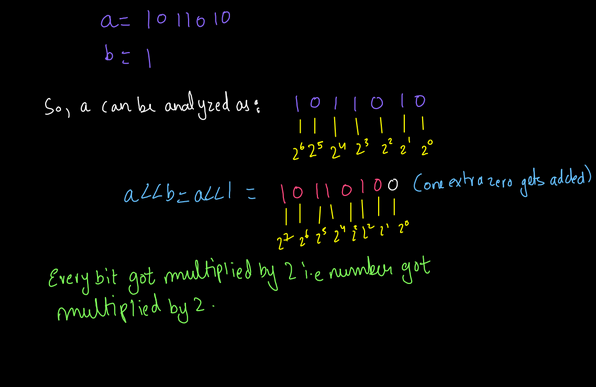 a = 1011010
b = 1
So, a can be analyzed as: 1 0 1 1 0 1 0
2⁶ 2⁵ 2⁴ 2³ 2² 2¹ 2⁰
a<<b = a<<1 = 1 0 1 1 0 1 0 0 (one extra zero gets added)
2⁷ 2⁶ 2⁵ 2⁴ 2³ 2² 2¹ 2⁰
Every bit got multiplied by 2 i.e number got
multiplied by 2.